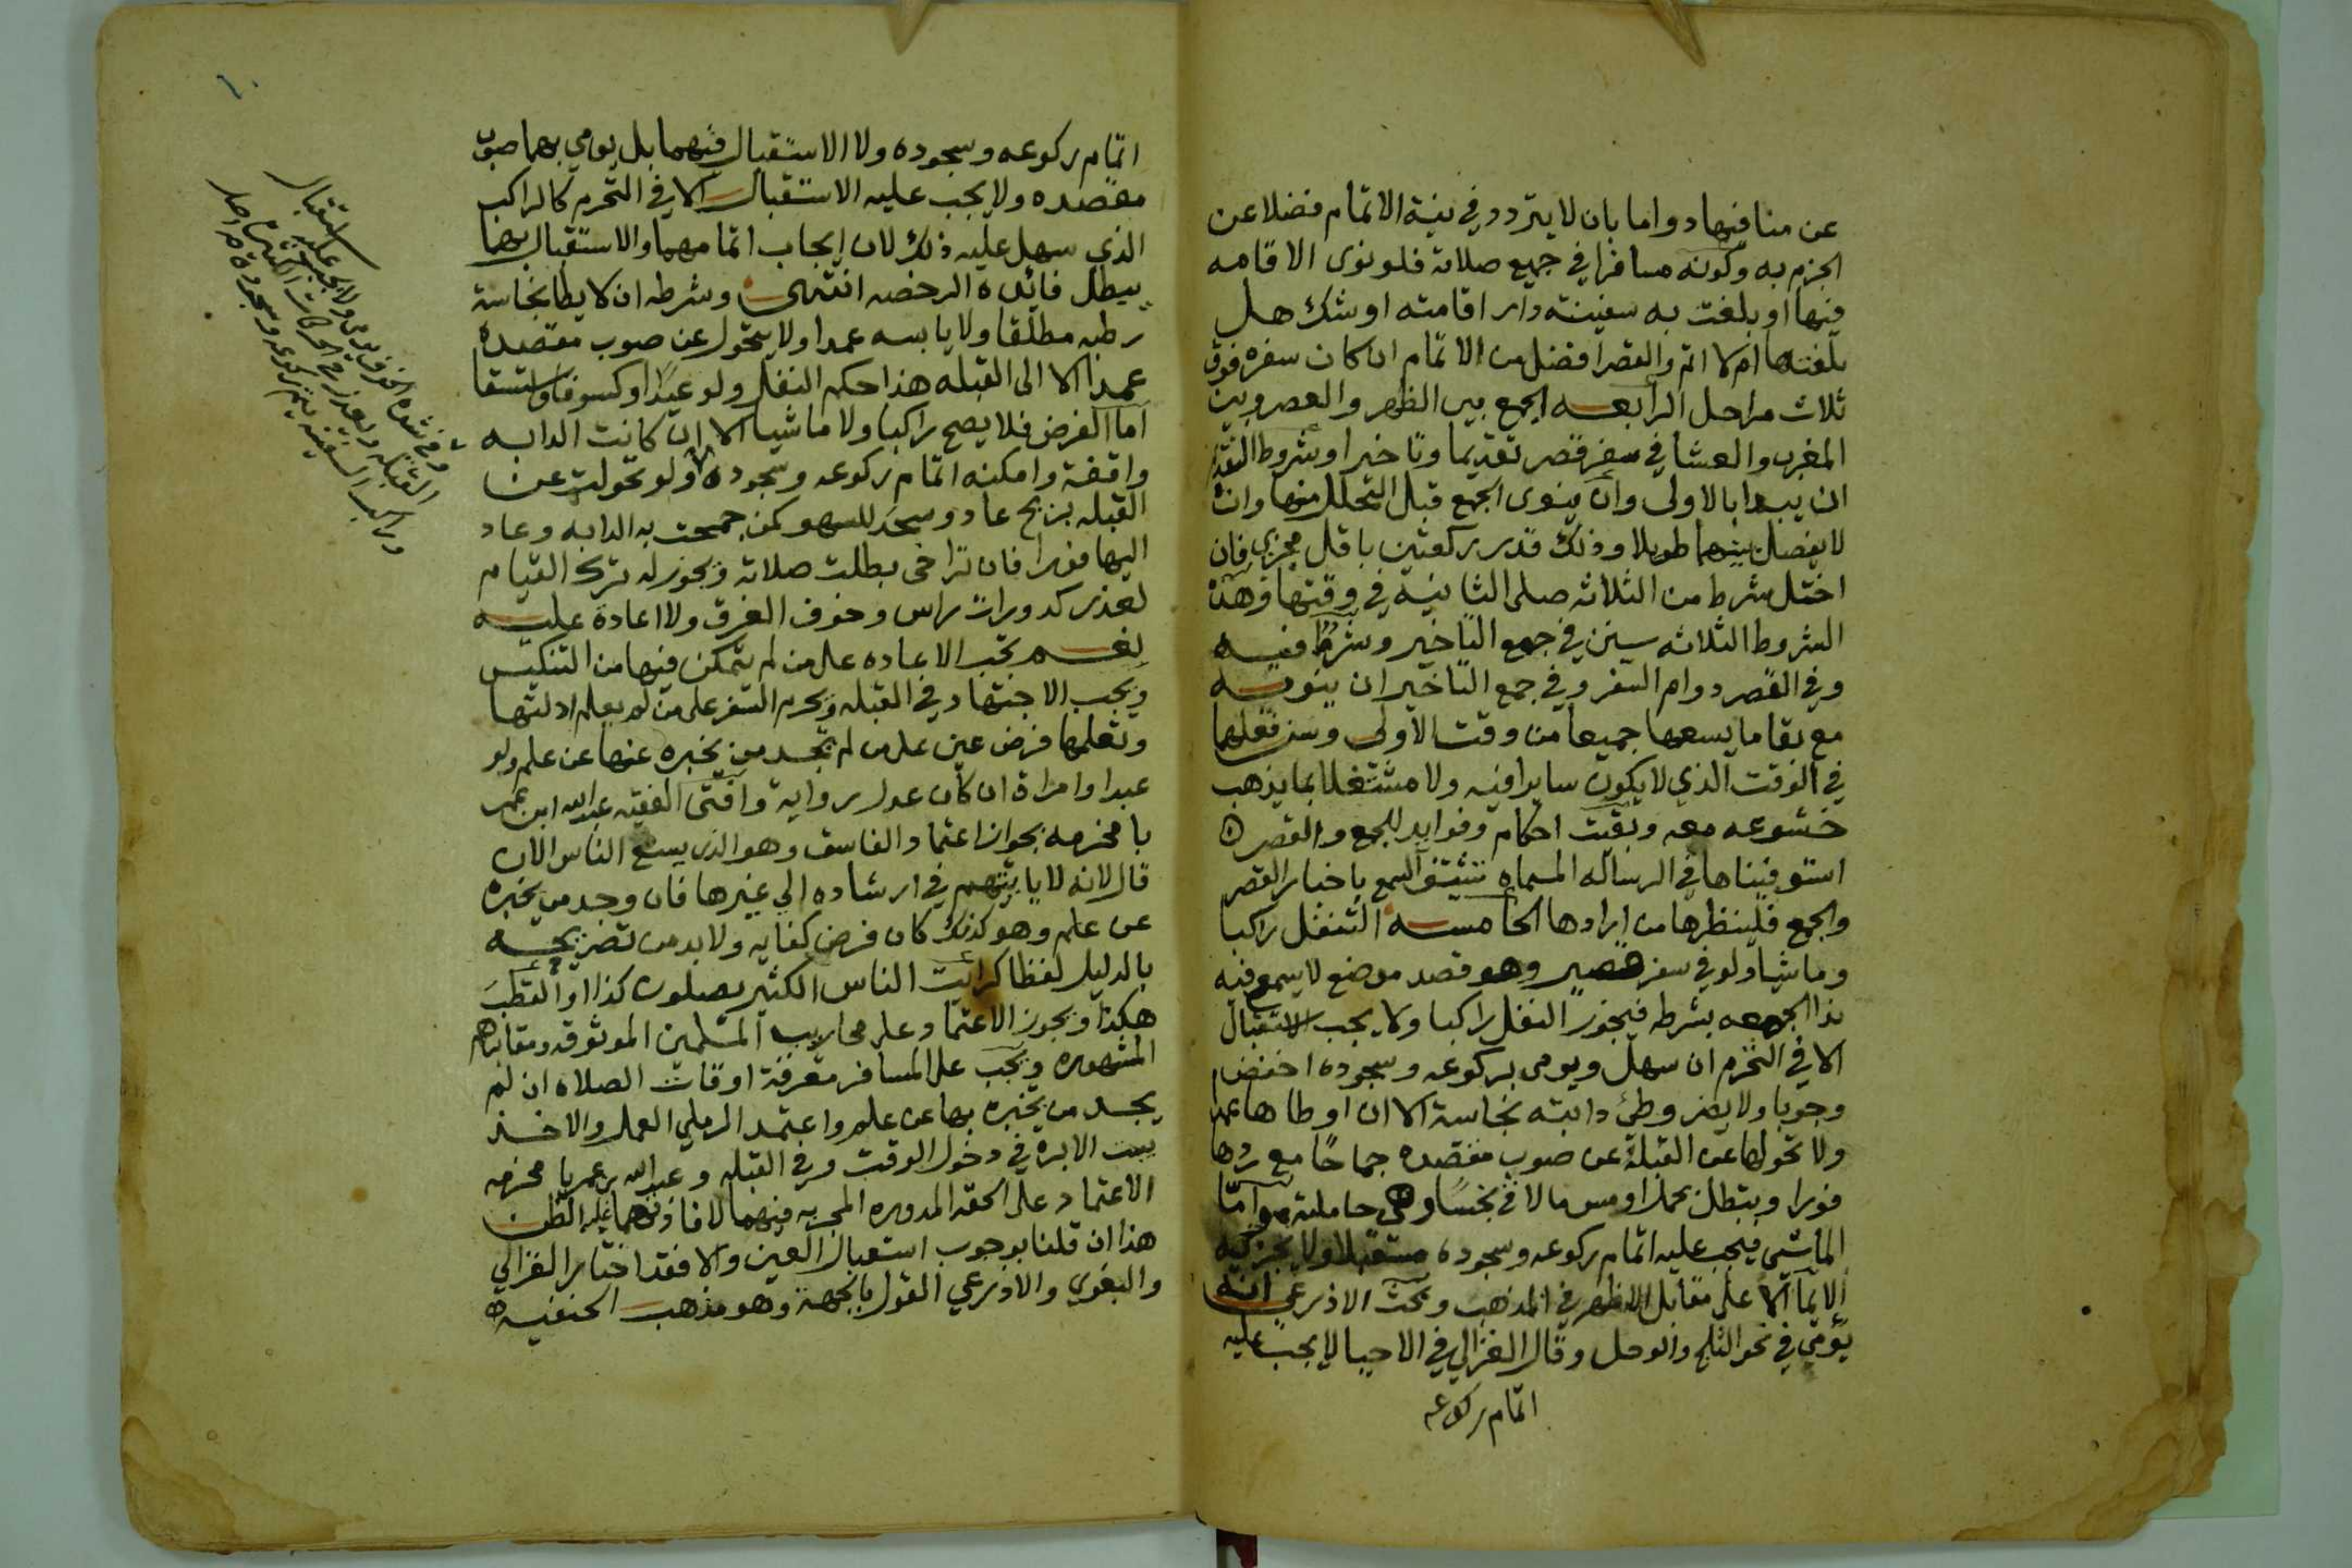 عن منافيها دواما بان لا يتردد في نية الاتمام فضلا عن
الجزم به وكونه مسافرا في جميع صلاته فلو نوى الاقامه
فيها او بلغت به سفينته دار اقامته او شك هل
بلغتها ام لا اتم والقصر افضل من الاتمام ان كان سفره فوق
ثلاث مراحل الرابعه الجمع بين الظهر والعصر وبين
المغرب والعشا في سفر قصر تقديما وتاخيرا وشروط التقديم
ان يبدا بالاولى وان ينوى الجمع قبل التحلل منها وان
لا يفصل بينهما طويلا وذلك قدر ركعتين باقل مجزي فان
اختل شرط من الثلاثه صلى الثانية في وقتها وهذه
الشروط الثلاثه سنن في جمع التاخير وشرط فيه
وفي القصر دوام السفر وفي جمع التاخير ان ينويه
مع بقا ما يسعها جميعا من وقت الاولى وسن فعلها
في الوقت الذي لا يكون سايرا فيه ولا مشتغلا بما يذهب
خشوعه معه وبقيت احكام وفوايد للجمع والقصر
استوفيناها في الرساله المسماه تشنيف السمع باخبار القصر
والجمع فلينظرها من ارادها الخامسه التنفل راكبا
وماشيا ولو في سفر قصير وهو قصد موضع لا يسمع فيه
ندا الجمعه بشرطه فيجوز النفل راكبا ولا يجب الاستقبال
الا في التحرم ان سهل ويومى بركوعه وسجوده اخفض
وجوبا ولا يضر وطئ دابته نجاسة الا ان اوطاها عمدا
ولا تحولها عن القبلة عن صوب مقصده جماحًا مع ردها
فورا ويبطل بحمل او مس ما لاقى نجسًا وهي حاملته واما
الماشي فيجب عليه اتمام ركوعه وسجوده مستقبلا ولا يجزيه
الايما الا على مقابل الاظهر في المذهب وبحث الاذرعي انه
يومي في نحو الثلج والوحل وقال الغزالي في الاحيا لا يجب عليه
اتمام ركوعه
١٠
اتمام ركوعه وسجوده ولا الاستقبال فيهما بل يومي بهما صوب
مقصده ولا يجب عليه الاستقبال الا في التحرم كالراكب
الذي سهل عليه ذلك لان ايجاب اتمامهما والاستقبال بهما
يبطل فائدة الرخصه انتهى وشرطه ان لا يطا نجاسة
رطبه مطلقا ولا يابسه عمدا ولا يتحول عن صوب مقصده
عمدا الا الى القبله هذا حكم النفل ولو عيدًا او كسوفا واستسقا
اما الفرض فلا يصح راكبا ولا ماشيا الا ان كانت الدابه
واقفة وامكنه اتمام ركوعه وسجوده ولو تحولت عن
القبله بريح عاد وسجد للسهو كمن جمحت به الدابه وعاد
اليها فورا فان تراخى بطلت صلاته ويجوز له ترك القيام
لعذر كدوران راس وخوف الغرق ولا اعادة عليه
نعم تجب الاعاده على من لم يتمكن فيها من التنكيس
ويجب الاجتهاد في القبله ويحرم السفر على من لم يعلم ادلتها
وتعلمها فرض عين على من لم يجد من يخبره عنها عن علم ولو
عبدا وامراة ان كان عدل رواية وافتى الفقيه عبد الله ابن عمر
بامخرمه بجواز اعتماد الفاسق وهو الذي يسع الناس الان
قال لانه لا يتهم في ارشاده الي غيرها فان وجد من يخبره
عن علم وهو كذلك كان فرض كفايه ولا بد من تصريحه
بالدليل لفظا كرايت الناس الكثير يصلون كذا او القطب
هكذا ويجوز الاعتماد على محاريب المسلمين الموثوقه ومقابرهم
المشهوره ويجب على المسافر معرفة اوقات الصلاه ان لم
يجد من يخبره بها عن علم واعتمد الرملي العمل والاخذ
ببيت الابره في دخول الوقت وفي القبله وعبد الله بن عمر با مخرمه
الاعتماد على الحقه المدوره المجربه فيهما لافادتهما غلبة الظن
هذا ان قلنا بوجوب استقبال العين والا فقد اختار الغزالي
والبغوي والاذرعي القول بالجهة وهو مذهب الحنفيه